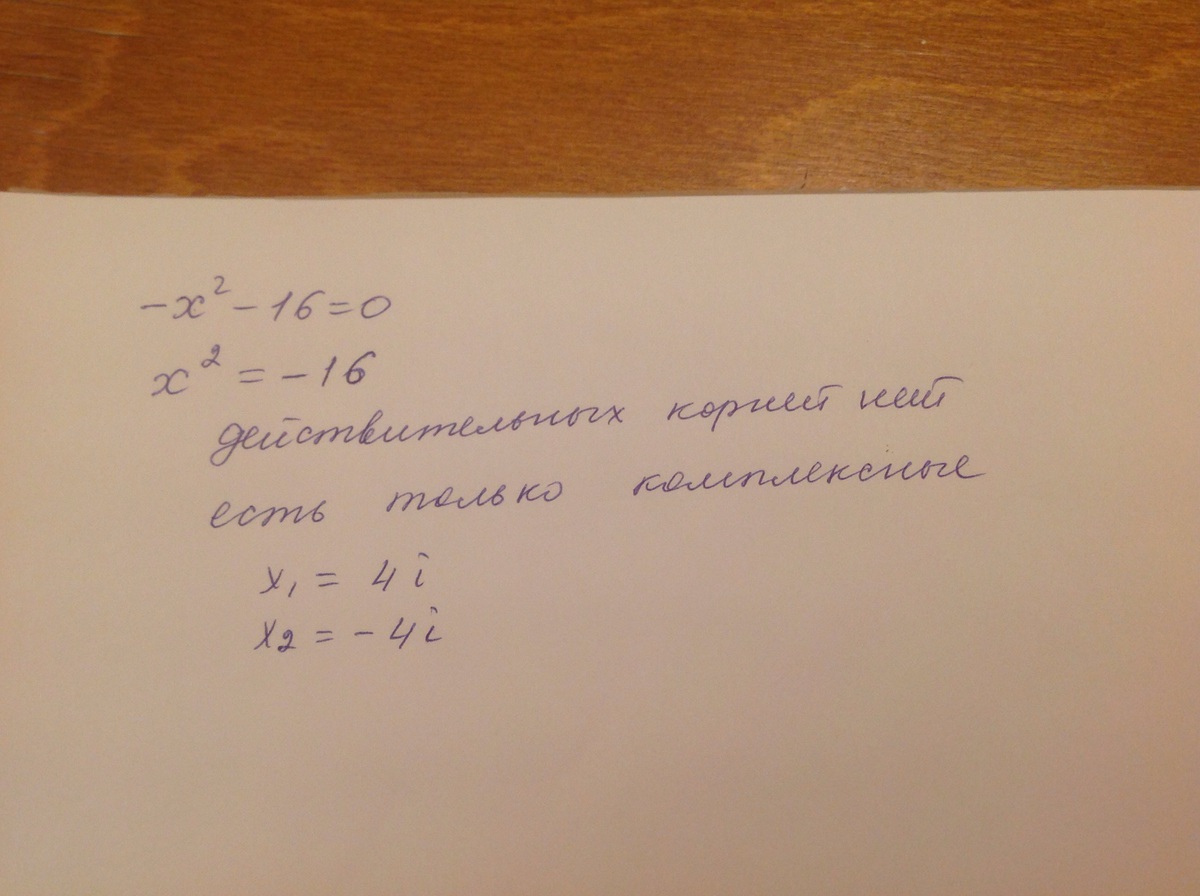 -x² - 16 = 0
x² = -16
действительных корней нет
есть только комплексные
x₁ = 4i
x₂ = -4i